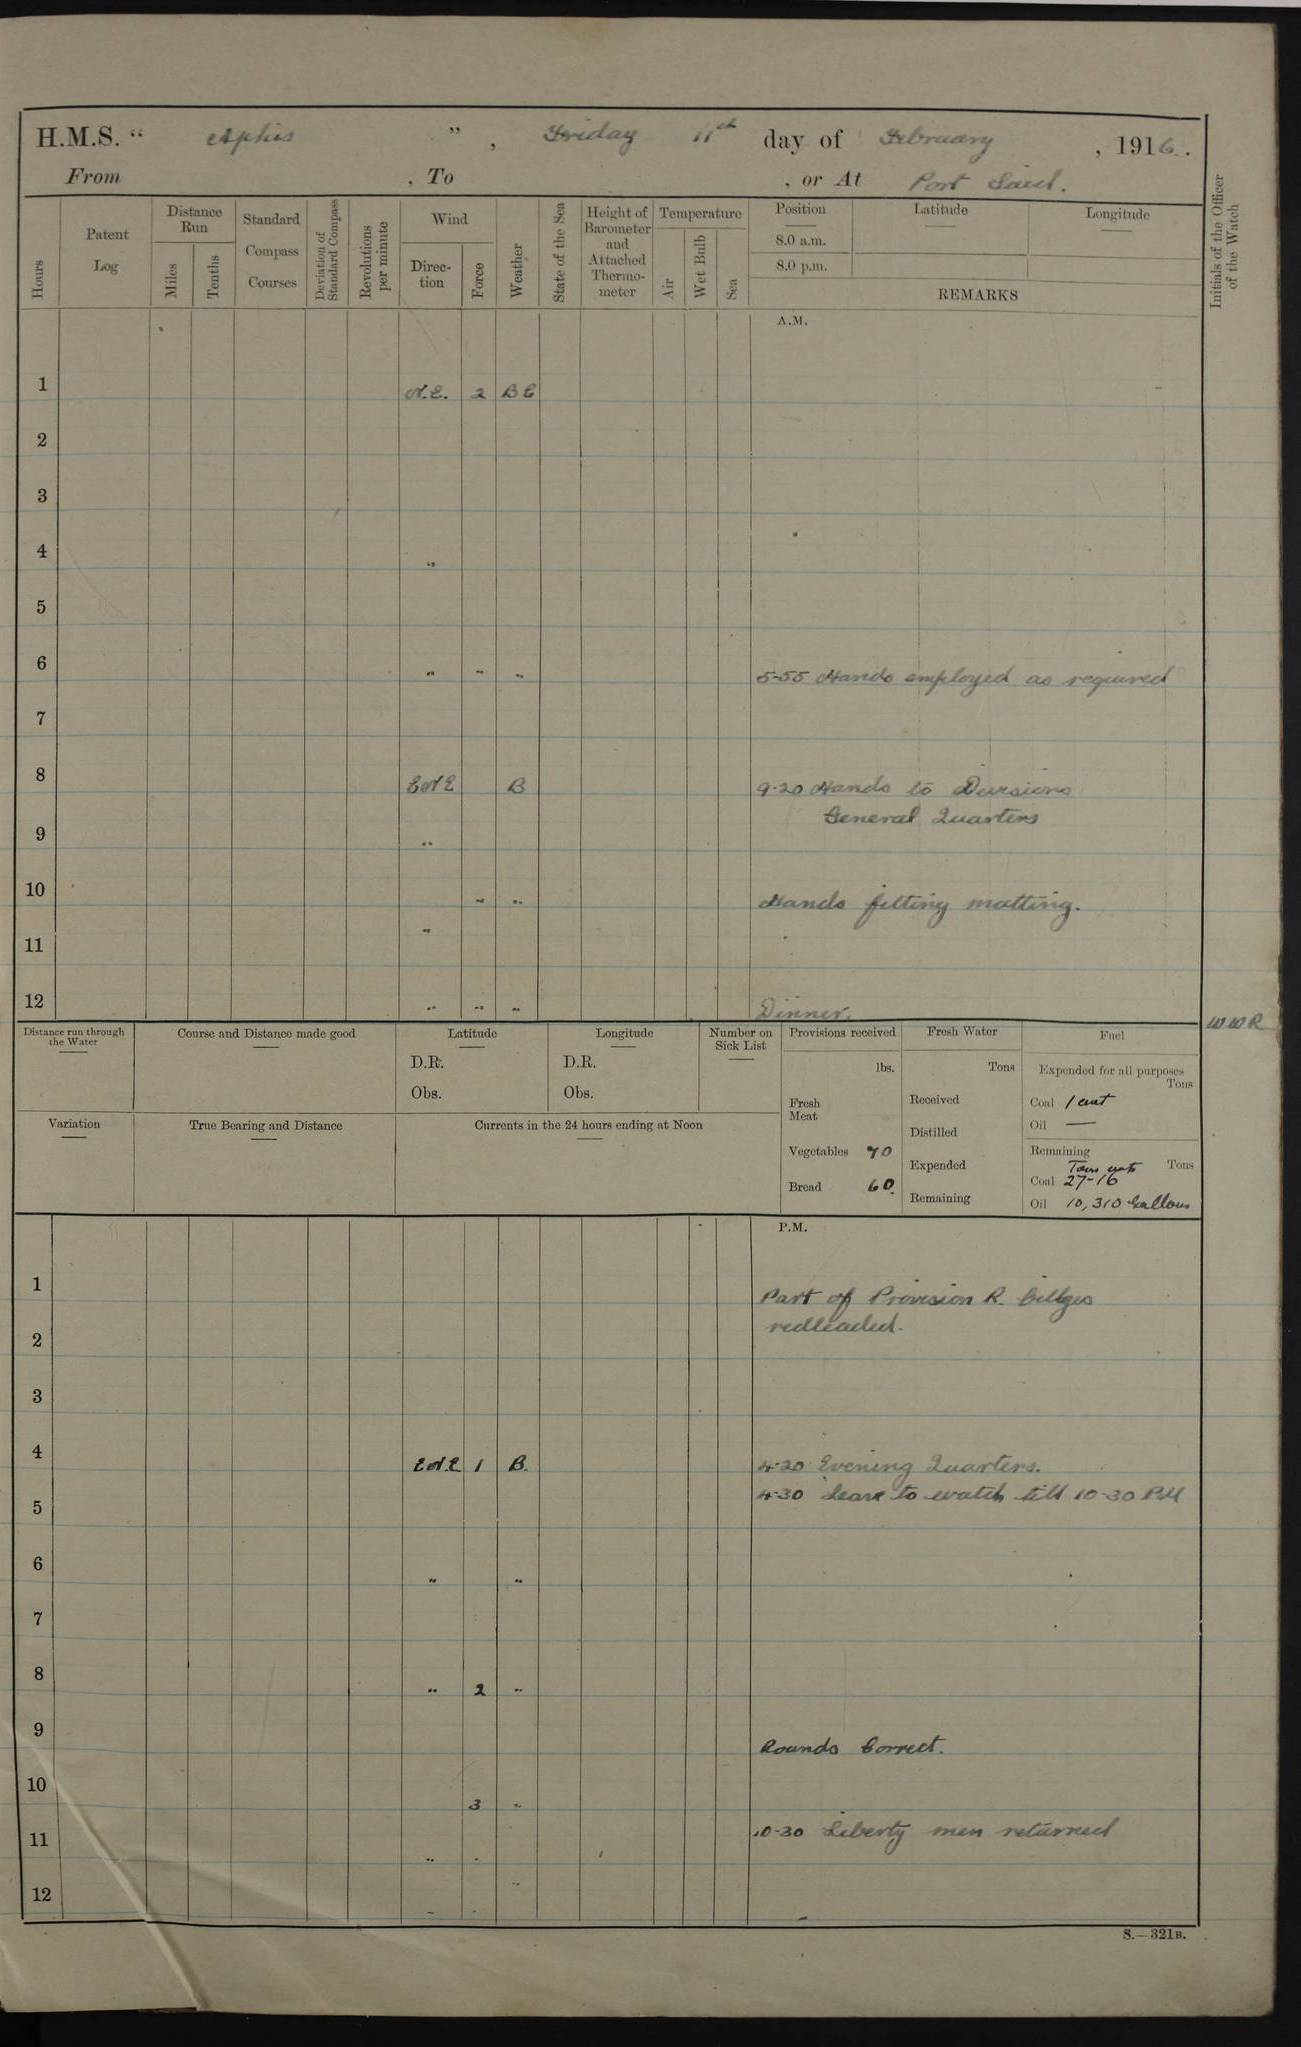 H.M.S. “ Aphis ” , Friday 11th day of February , 1916.
From , To , or At Port Said.
Hours
Patent Log
Distance Run
Miles
Tenths
Standard Compass Courses
Deviation of Standard Compass
Revolutions per minute
Wind
Direc- tion
Force
Weather
State of the Sea
Height of Barometer and Attached Thermo- meter
Temperature
Air
Wet Bulb
Sea
Position
8.0 a.m.
8.0 p.m.
Latitude
Longitude
REMARKS
Initials of the Officer of the Watch
A.M.
1 N.E. 2 BC
2
3
4 "
5
6 " " " 5-55 Hands employed as required
7
8 ENE B 9-20 Hands to Divisions
General Quarters
9 "
10 " " Hands fitting matting.
11 "
12 " " " Dinner.
W W R
Distance run through the Water
Course and Distance made good
Latitude
D.R.
Obs.
Longitude
D.R.
Obs.
Number on Sick List
Variation
True Bearing and Distance
Currents in the 24 hours ending at Noon
Provisions received
lbs.
Fresh Meat
Vegetables 70
Bread 60.
Fresh Water
Tons
Received
Distilled
Expended
Remaining
Fuel
Expended for all purposes
Tons
Coal 1 cwt
Oil —
Remaining
Tons cwts Tons
Coal 27-16
Oil 10,310 Gallons
P.M.
1 Part of Provision R. billges
2 redleaded.
3
4 ENE 1 B. 4-20 Evening Quarters.
4-30 Leave to watch till 10-30 PM
5
6 " "
7
8 " 2 "
9 Rounds Correct.
10 3 "
10-30 Liberty men returned
11 " "
12 " " "
S.—321B.